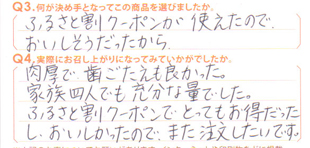 Q3.何が決め手となってこの商品を選びましたか。
ふるさと割クーポンが使えたので、
おいしそうだったから。
Q4.実際にお召し上がりになってみていかがでしたか。
肉厚で、歯ごたえも良かった。
家族四人でも充分な量でした。
ふるさと割クーポンでとってもお得だった
し、おいしかったので、また注文したいです。